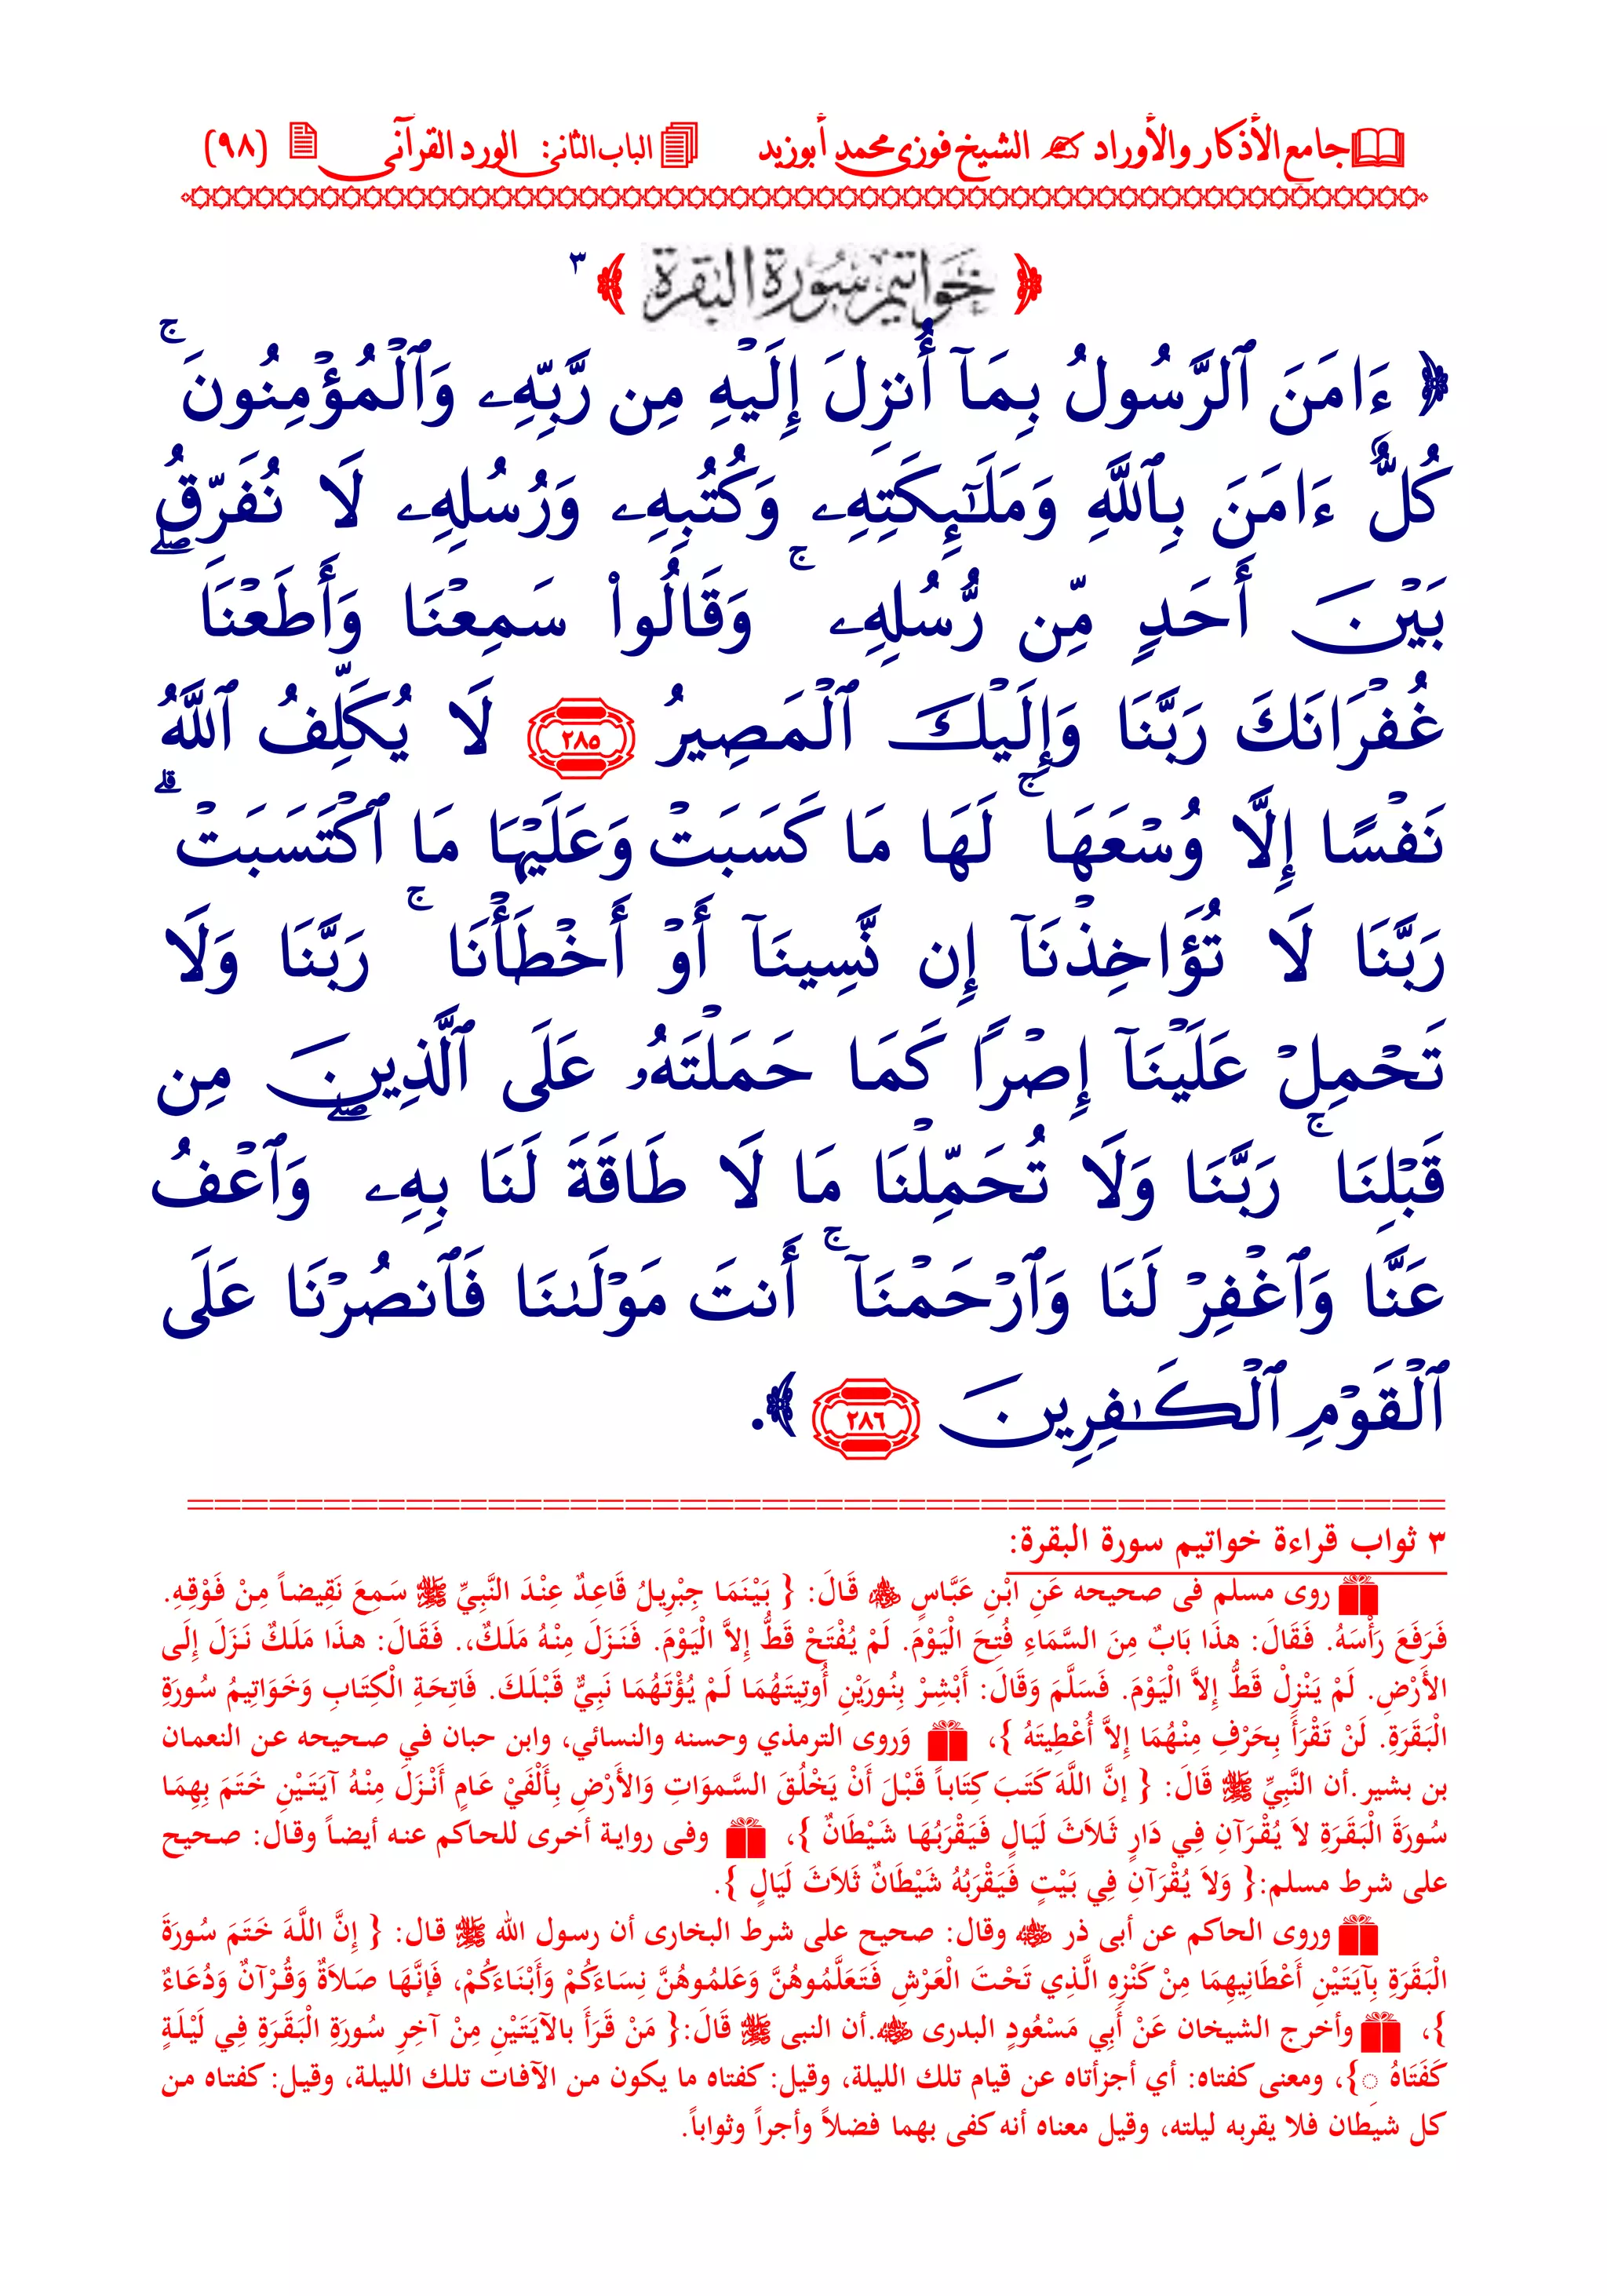 جامع الأذكار والأوراد الشيخ فوزى محمد أبوزيد الباب الثانى: الورد القرآنى (٩٨)
﴿ خَوَاتِيمُ سُورَةُ البَقَرَةِ ﴾ ٣
﴿ ءَامَنَ ٱلرَّسُولُ بِمَآ أُنزِلَ إِلَيْهِ مِن رَّبِّهِۦ وَٱلْمُؤْمِنُونَ ۚ
كُلٌّ ءَامَنَ بِٱللَّهِ وَمَلَـٰٓئِكَتِهِۦ وَكُتُبِهِۦ وَرُسُلِهِۦ لَا نُفَرِّقُ
بَيْنَ أَحَدٍ مِّن رُّسُلِهِۦ ۚ وَقَالُوا۟ سَمِعْنَا وَأَطَعْنَا ۖ
غُفْرَانَكَ رَبَّنَا وَإِلَيْكَ ٱلْمَصِيرُ ٢٨٥ لَا يُكَلِّفُ ٱللَّهُ
نَفْسًا إِلَّا وُسْعَهَا ۚ لَهَا مَا كَسَبَتْ وَعَلَيْهَا مَا ٱكْتَسَبَتْ ۗ
رَبَّنَا لَا تُؤَاخِذْنَآ إِن نَّسِينَآ أَوْ أَخْطَأْنَا ۚ رَبَّنَا وَلَا
تَحْمِلْ عَلَيْنَآ إِصْرًا كَمَا حَمَلْتَهُۥ عَلَى ٱلَّذِينَ مِن
قَبْلِنَا ۚ رَبَّنَا وَلَا تُحَمِّلْنَا مَا لَا طَاقَةَ لَنَا بِهِۦ ۖ وَٱعْفُ
عَنَّا وَٱغْفِرْ لَنَا وَٱرْحَمْنَآ ۚ أَنتَ مَوْلَىٰنَا فَٱنصُرْنَا عَلَى
ٱلْقَوْمِ ٱلْكَـٰفِرِينَ ٢٨٦ ﴾.
٣ ثواب قراءة خواتيم سورة البقرة:
روى مسلم فى صحيحه عَنِ ابْنِ عَبَّاسٍ ﷺ قَالَ: { بَيْنَمَا جِبْرِيلُ قَاعِدٌ عِنْدَ النَّبِيِّ ﷺ سَمِعَ نَقِيضاً مِنْ فَوْقِهِ.
فَرَفَعَ رَأْسَهُ. فَقَالَ: هذَا بَابٌ مِنَ السَّمَاءِ فُتِحَ الْيَوْمَ. لَمْ يُفْتَحْ قَطُّ إِلاَّ الْيَوْمَ. فَنَزَلَ مِنْهُ مَلَكٌ،. فَقَالَ: هذَا مَلَكٌ نَزَلَ إِلَى
الأَرْضِ. لَمْ يَنْزِلْ قَطُّ إِلاَّ الْيَوْمَ. فَسَلَّمَ وَقَالَ: أَبْشِرْ بِنُورَيْنِ أُوتِيتَهُمَا لَمْ يُؤْتَهُمَا نَبِيٌّ قَبْلَكَ. فَاتِحَةِ الْكِتَابِ وَخَوَاتِيمُ سُورَةِ
الْبَقَرَةِ. لَنْ تَقْرَأَ بِحَرْفٍ مِنْهُمَا إِلاَّ أُعْطِيتَهُ }، وَروى الترمذي وحسنه والنسائي، وابن حبان في صحيحه عن النعمان
بن بشير.أن النَّبِيِّ ﷺ قَالَ: { إنَّ اللَّهَ كَتَبَ كِتَاباً قَبْلَ أَنْ يَخْلُقَ السَّموَاتِ وَالأَرْضِ بِأَلْفَيْ عَامٍ أَنْزَلَ مِنْهُ آيَتَيْنِ خَتَمَ بِهِمَا
سُورَةَ الْبَقَرَةِ لاَ يُقْرَآنِ فِي دَارٍ ثَلاَثَ لَيَالٍ فَيَقْرَبُهَا شَيْطَانٌ }، وفى رواية أخرى للحاكم عنه أيضاً وقال: صحيح
على شرط مسلم:{ وَلاَ يُقْرَآنِ فِي بَيْتٍ فَيَقْرَبُهُ شَيْطَانٌ ثَلاَثَ لَيَالٍ }.
وروى الحاكم عن أبى ذر وقال: صحيح على شرط البخارى أن رسول الله ﷺ قال: { إِنَّ اللَّهَ خَتَمَ سُورَةَ
الْبَقَرَةِ بِآيَتَيْنِ أَعْطَانِيهِمَا مِنْ كَنْزِهِ الَّذِي تَحْتَ الْعَرْشِ فَتَعَلَّمُوهُنَّ وَعَلمُوهُنَّ نِسَاءَكُمْ وَأَبْنَاءَكُمْ، فَإنَّهَا صَلاَةٌ وَقُرْآنٌ وَدُعَاءٌ
}، وأخرج الشيخان عَنْ أَبِي مَسْعُودٍ البدرى .أن النبى ﷺ قَالَ:{ مَنْ قَرَأَ بالآيَتَيْنِ مِنْ آخِرِ سُورَةِ الْبَقَرَةِ فِي لَيْلَةٍ
كَفَتَاهُ }، ومعنى كفتاه: أي أجزأتاه عن قيام تلك الليلة، وقيل: كفتاه ما يكون من الآفات تلك الليلة، وقيل: كفتاه من
كل شيطان فلا يقربه ليلته، وقيل معناه أنه كفى بهما فضلاً وأجراً وثواباً.